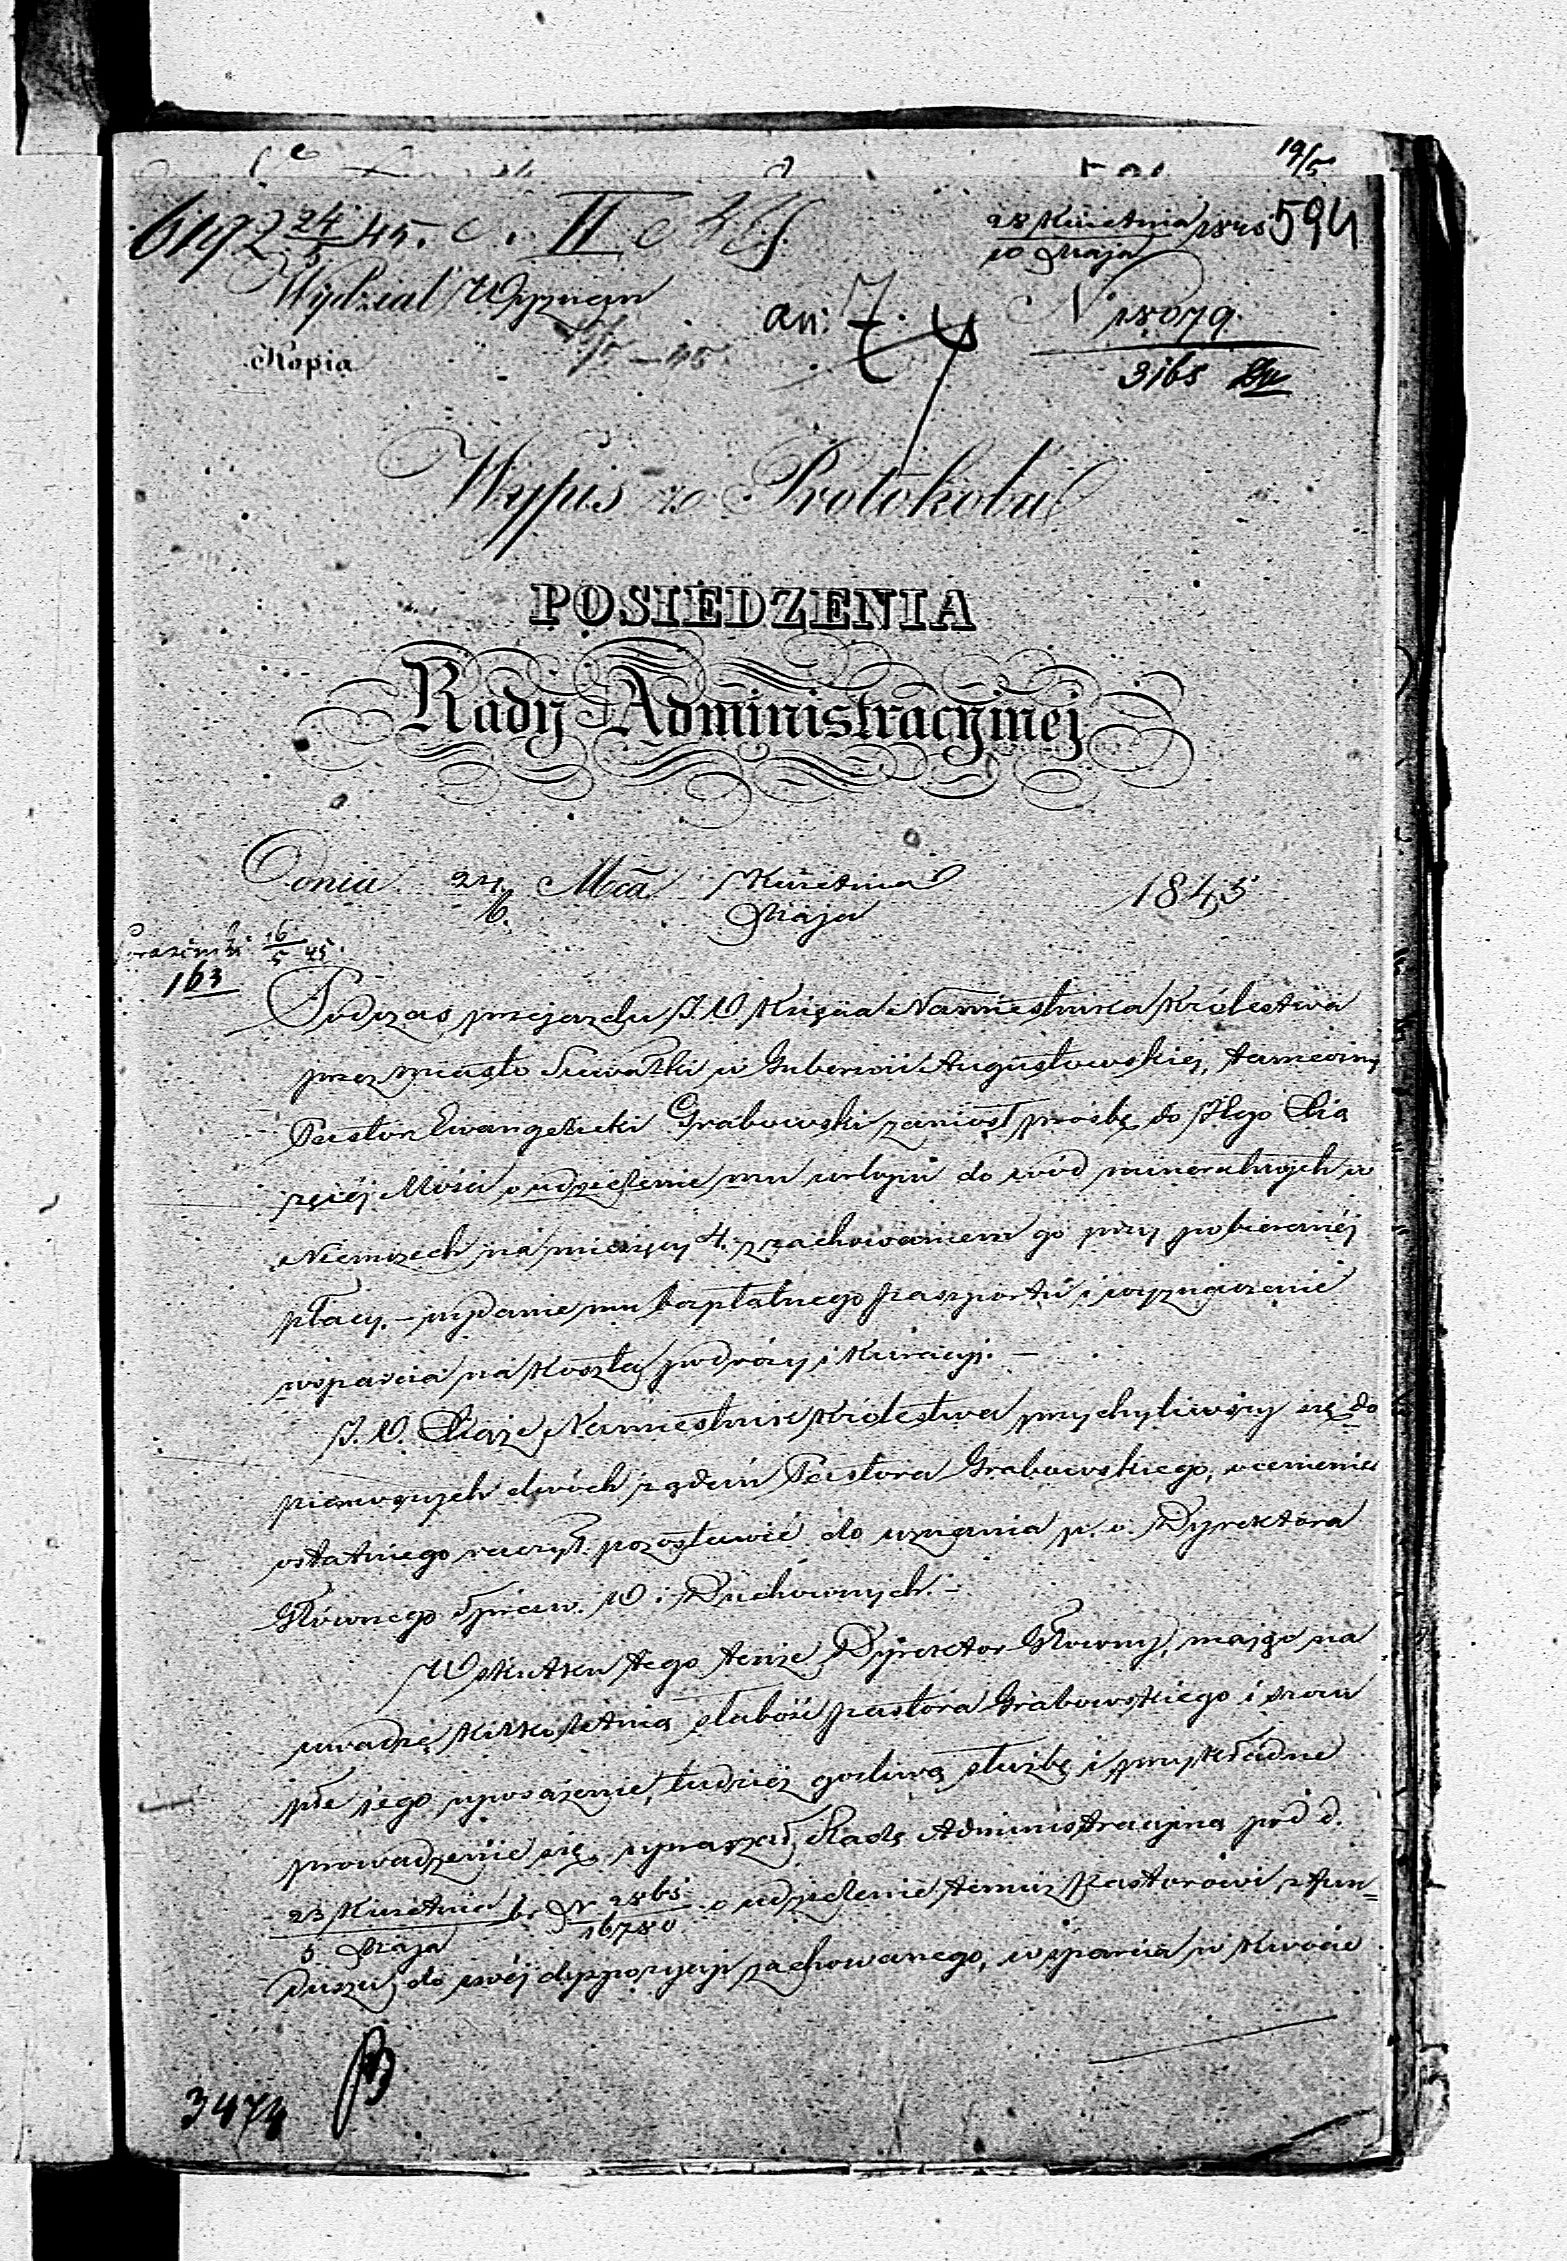 19/5
6192 24/5 45. II
28 Kwietnia / 10 Maja 1845 594
Wydział Wyznań
an: 7.
N 18079
3165
Kopia
Wypis z Protokołu
POSIEDZENIA
Rady Administracyjnej
Dnia 24/6 Mca Kwietnia / Maja 1845
16/5 45.
163
Podczas przejazdu J. O Księcia Namiestnika Królestwa
przez miasto Suwałki w Gubernii Augustowskiej, tameczny
Pastor Ewangelicki Grabowski zaniosł prośbę do Jego Xią
żęcéj Mości o udzielenie mu urlopu do wód mineralnych w
Niemczech na miesięcy 4. z zachowaniem go przy pobieranéj
płacy. – wydanie mu bezpłatnego paszportu i wyznaczenie
wsparcia na koszta podróży i kuracyi. –
J. O. Xiąże Namiestnik Królestwa przychyliwszy się do
pierwszych dwóch żądań Pastora Grabowskiego, ocenienie
ostatniego raczył pozostawić do uznania p. o. Dyrektora
Głównego Spraw. W. i Duchownych. –
W skutku tego tenże Dyrektor Główny, mając na
uwadze kilkoletnią słabość pastora Grabowskiego i szczu
płe jego uposażenie, tudzież gorliwą służbę i przykładne
prowadzenie się, upraszał Radę Administracyjną pod d.
23 Kwietnia / 5 Maja b. r. N 2865 / 16780 o udzielenie temuż Pastorowi z fun-
duszu, do swéj dyspozycyi zachowanego, wsparcia w kwocie
3474